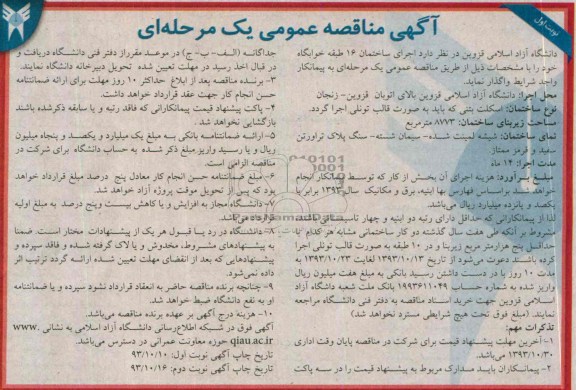 نوبت اول
آگهی مناقصه عمومی یک مرحله‌ای
دانشگاه آزاد اسلامی قزوین در نظر دارد اجرای ساختمان ۱۶ طبقه خوابگاه
خود را با مشخصات ذیل از طریق مناقصه عمومی یک مرحله‌ای به پیمانکار
واجد شرایط واگذار نماید.
محل اجرا: دانشگاه آزاد اسلامی قزوین بالای اتوبان قزوین- زنجان
نوع ساختمان: اسکلت بتنی که باید به صورت قالب تونلی اجرا گردد.
مساحت زیربنای ساختمان: ۸۷۷۳ مترمربع
نمای ساختمان: شیشه لمینت شده- سیمان شسته- سنگ پلاک تراورتن
سفید و قرمز ممتاز
مدت اجرا: ۱۴ ماه
مبلغ برآورد: هزینه اجرای آن بخش از کار که توسط پیمانکار انجام
خواهد شد براساس فهارس بها ابنیه، برق و مکانیک سال ۱۳۹۳ برابر با
یکصد و پانزده میلیارد ریال می‌باشد.
لذا از پیمانکارانی که حداقل دارای رتبه دو ابنیه و چهار تاسیسات می‌باشند
مشروط بر آنکه طی هفت سال گذشته دو کار ساختمانی مشابه هر کدام با
حداقل پنج هزارمتر مربع زیربنا و در ۱۰ طبقه به صورت قالب تونلی اجرا
کرده باشند دعوت می‌شود از تاریخ ۱۳۹۳/۱۰/۱۳ لغایت ۱۳۹۳/۱۰/۲۳ به
مدت ۱۰ روز با در دست داشتن رسید بانکی به مبلغ هفت میلیون ریال
واریز شده به شماره حساب ۱۹۹۳۶۱۱۰۴۹ بانک ملت شعبه دانشگاه آزاد
اسلامی قزوین جهت خرید اسناد مناقصه به دفتر فنی دانشگاه مراجعه
نمایند. (مبلغ فوق تحت هیچ شرایطی مسترد نخواهد شد)
تذکرات مهم:
۱- آخرین مهلت پیشنهاد قیمت برای شرکت در مناقصه پایان وقت اداری
۱۳۹۳/۱۰/۳۰ می‌باشد.
۲- پیمانکاران باید مدارک مربوط به پیشنهاد قیمت را در سه پاکت
جداگانه (الف- ب- ج) در موعد مقرر از دفتر فنی دانشگاه دریافت و
در قبال اخذ رسید در مهلت تعیین شده تحویل دبیرخانه دانشگاه نمایند.
۳- برنده مناقصه بعد از ابلاغ حداکثر ۱۰ روز مهلت برای ارائه ضمانتنامه
حسن انجام کار جهت عقد قرارداد خواهد داشت.
۴- پاکت پیشنهاد قیمت پیمانکارانی که فاقد رتبه و یا سابقه ذکرشده باشند
بازگشایی نخواهد شد.
۵- ارائه ضمانتنامه بانکی به مبلغ یک میلیارد و یکصد و پنجاه میلیون
ریال و یا رسید واریز مبلغ ذکر شده به حساب دانشگاه برای شرکت در
مناقصه الزامی است.
۶- مبلغ ضمانتنامه حسن انجام کار معادل پنج درصد مبلغ قرارداد خواهد
بود که پس از تحویل موقت پروژه آزاد خواهد شد.
۷- دانشگاه مجاز به افزایش و یا کاهش بیست و پنج درصد به مبلغ اولیه
می‌باشد.
۸- دانشگاه در رد یا قبول هر یک از پیشنهادات مختار است. ضمنا
به پیشنهادهای مشروط، مخدوش و یا لاک گرفته شده و فاقد سپرده و
پیشنهادهایی که بعد از انقضای مهلت تعیین شده ارائه گردد ترتیب اثر
داده نمی‌شود.
۹- چنانچه برنده مناقصه حاضر به انعقاد قرارداد نشود سپرده و یا ضمانتنامه
او به نفع دانشگاه ضبط خواهد شد.
۱۰- هزینه درج آگهی بر عهده برنده مناقصه می‌باشد.
آگهی فوق در شبکه اطلاع‌رسانی دانشگاه آزاد اسلامی به نشانی www.
qiau.ac.ir حوزه معاونت عمرانی در دسترس می‌باشد.
تاریخ چاپ آگهی نوبت اول: ۹۳/۱۰/۱۰
تاریخ چاپ آگهی نوبت دوم: ۹۳/۱۰/۱۶